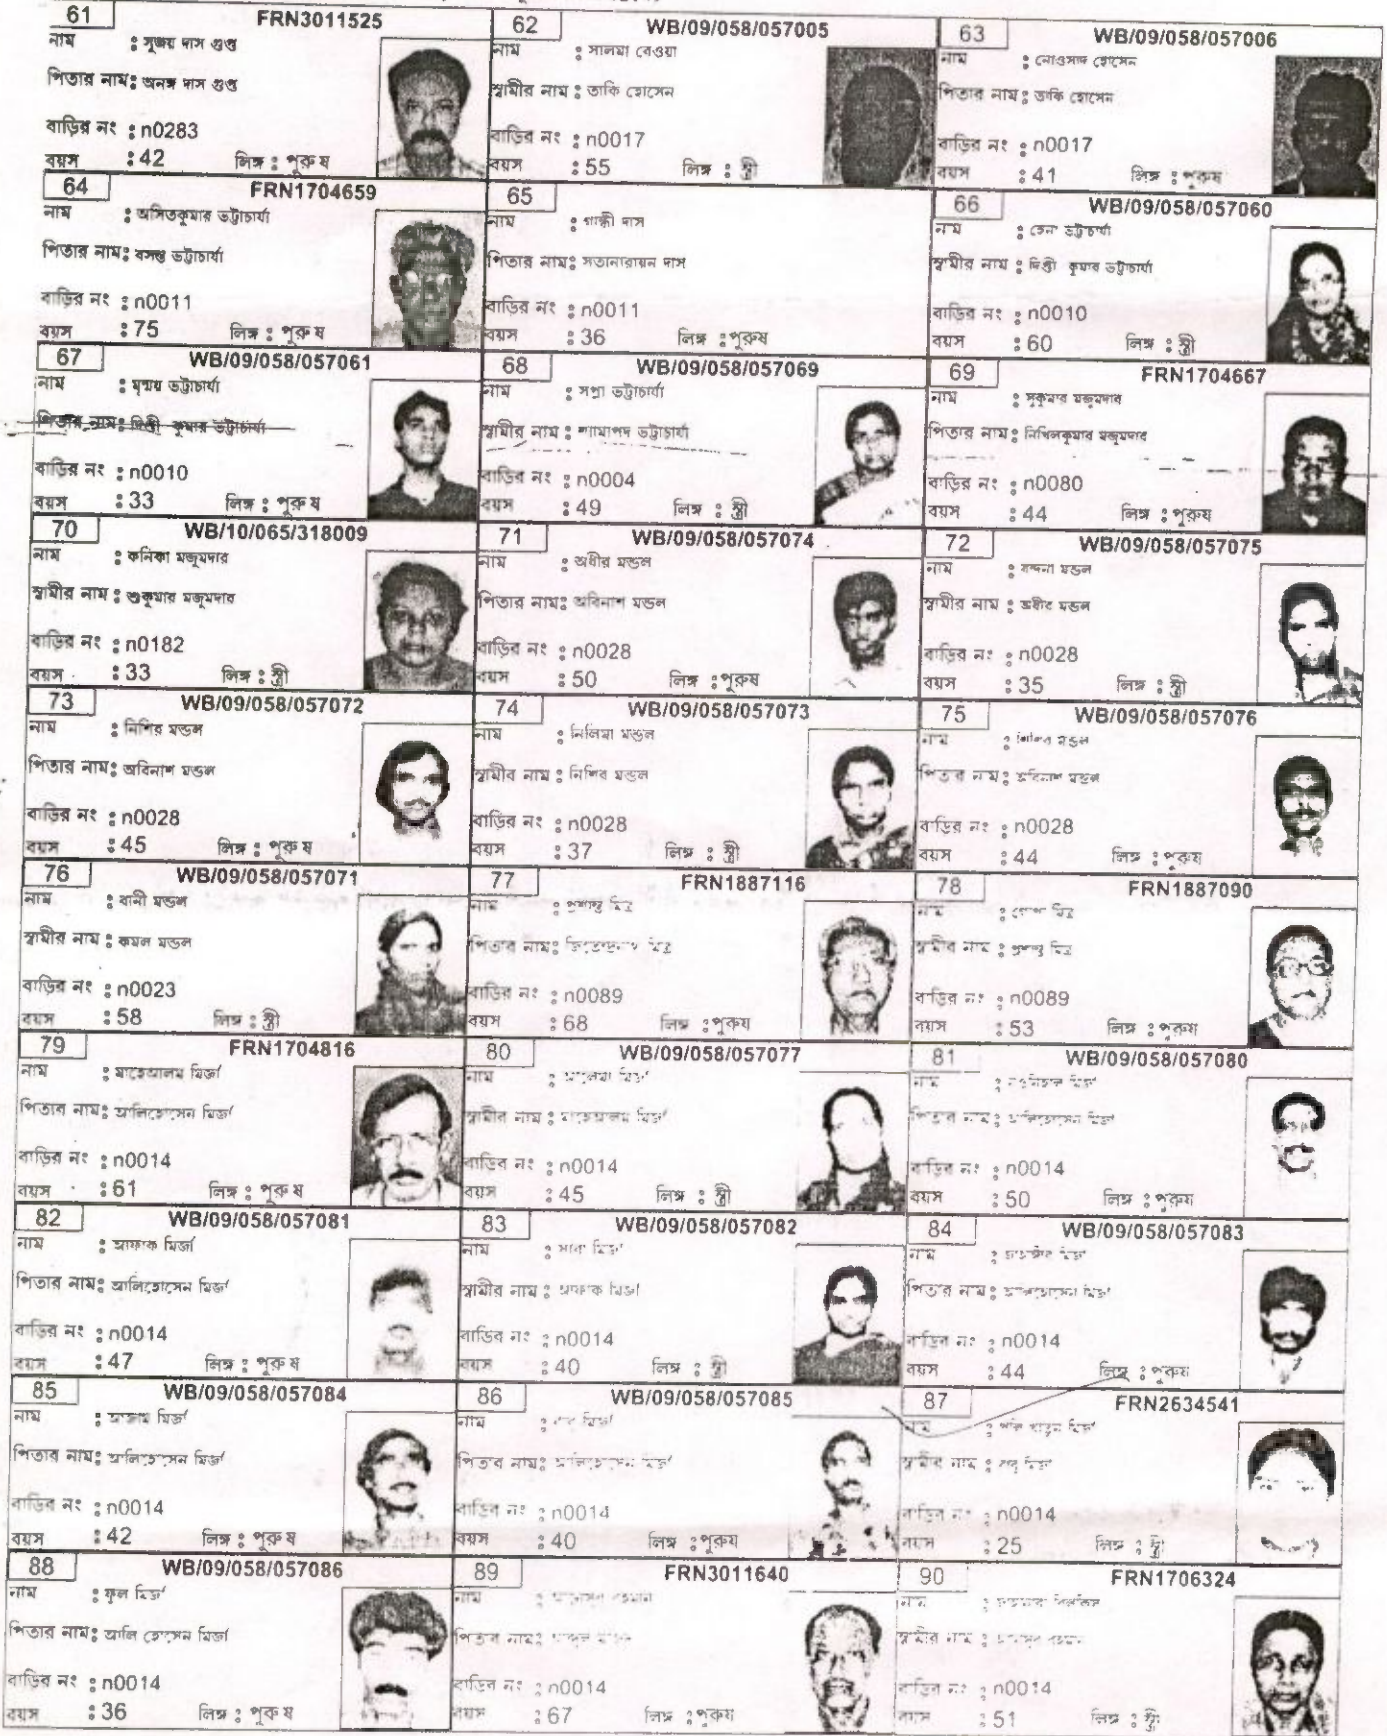 61 FRN3011525
নাম : সুজয় দাস গুপ্ত
পিতার নাম: অনঙ্গ দাস গুপ্ত
বাড়ির নং : n0283
বয়স : 42 লিঙ্গ : পুরুষ
62 WB/09/058/057005
নাম : সালমা বেওয়া
স্বামীর নাম : তাকি হোসেন
বাড়ির নং : n0017
বয়স : 55 লিঙ্গ : স্ত্রী
63 WB/09/058/057006
নাম : নোওসাদ হোসেন
পিতার নাম: তাকি হোসেন
বাড়ির নং : n0017
বয়স : 41 লিঙ্গ : পুরুষ
64 FRN1704659
নাম : অসিতকুমার ভট্টাচার্য্য
পিতার নাম: বসন্ত ভট্টাচার্য্য
বাড়ির নং : n0011
বয়স : 75 লিঙ্গ : পুরুষ
65
নাম : গান্ধী দাস
পিতার নাম: সত্যনারায়ন দাস
বাড়ির নং : n0011
বয়স : 36 লিঙ্গ : পুরুষ
66 WB/09/058/057060
নাম : হেনা ভট্টাচার্য্য
স্বামীর নাম : কুমার ভট্টাচার্য্য
বাড়ির নং : n0010
বয়স : 60 লিঙ্গ : স্ত্রী
67 WB/09/058/057061
নাম : মৃন্ময় ভট্টাচার্য্য
পিতার নাম: কুমার ভট্টাচার্য্য
বাড়ির নং : n0010
বয়স : 33 লিঙ্গ : পুরুষ
68 WB/09/058/057069
নাম : সপ্না ভট্টাচার্য্য
স্বামীর নাম : শ্যামাপদ ভট্টাচার্য্য
বাড়ির নং : n0004
বয়স : 49 লিঙ্গ : স্ত্রী
69 FRN1704667
নাম : সুকুমার মজুমদার
পিতার নাম: নিখিলকুমার মজুমদার
বাড়ির নং : n0080
বয়স : 44 লিঙ্গ : পুরুষ
70 WB/10/065/318009
নাম : কনিকা মজুমদার
স্বামীর নাম : শুকুমার মজুমদার
বাড়ির নং : n0182
বয়স : 33 লিঙ্গ : স্ত্রী
71 WB/09/058/057074
নাম : অধীর মন্ডল
পিতার নাম: অবিনাশ মন্ডল
বাড়ির নং : n0028
বয়স : 50 লিঙ্গ : পুরুষ
72 WB/09/058/057075
নাম : বন্দনা মন্ডল
স্বামীর নাম : অধীর মন্ডল
বাড়ির নং : n0028
বয়স : 35 লিঙ্গ : স্ত্রী
73 WB/09/058/057072
নাম : নিশির মন্ডল
পিতার নাম: অবিনাশ মন্ডল
বাড়ির নং : n0028
বয়স : 45 লিঙ্গ : পুরুষ
74 WB/09/058/057073
নাম : নিলিমা মন্ডল
স্বামীর নাম : নিশির মন্ডল
বাড়ির নং : n0028
বয়স : 37 লিঙ্গ : স্ত্রী
75 WB/09/058/057076
নাম : মন্ডল
পিতার নাম: অবিনাশ মন্ডল
বাড়ির নং : n0028
বয়স : 44 লিঙ্গ : পুরুষ
76 WB/09/058/057071
নাম : বানী মন্ডল
স্বামীর নাম : কমল মন্ডল
বাড়ির নং : n0023
বয়স : 58 লিঙ্গ : স্ত্রী
77 FRN1887116
নাম : প্রশান্ত মিত্র
পিতার নাম: জিতেন্দ্রনাথ মিত্র
বাড়ির নং : n0089
বয়স : 68 লিঙ্গ : পুরুষ
78 FRN1887090
নাম : মিত্র
স্বামীর নাম : প্রশান্ত মিত্র
বাড়ির নং : n0089
বয়স : 53 লিঙ্গ : পুরুষ
79 FRN1704816
নাম : মাহেআলম মির্জা
পিতার নাম: আলিহোসেন মির্জা
বাড়ির নং : n0014
বয়স : 61 লিঙ্গ : পুরুষ
80 WB/09/058/057077
নাম : মির্জা
স্বামীর নাম : মাহেআলম মির্জা
বাড়ির নং : n0014
বয়স : 45 লিঙ্গ : স্ত্রী
81 WB/09/058/057080
নাম : মির্জা
পিতার নাম: আলিহোসেন মির্জা
বাড়ির নং : n0014
বয়স : 50 লিঙ্গ : পুরুষ
82 WB/09/058/057081
নাম : আফাক মির্জা
পিতার নাম: আলিহোসেন মির্জা
বাড়ির নং : n0014
বয়স : 47 লিঙ্গ : পুরুষ
83 WB/09/058/057082
নাম : মির্জা
স্বামীর নাম : আফাক মির্জা
বাড়ির নং : n0014
বয়স : 40 লিঙ্গ : স্ত্রী
84 WB/09/058/057083
নাম : মির্জা
পিতার নাম: আলিহোসেন মির্জা
বাড়ির নং : n0014
বয়স : 44 লিঙ্গ : পুরুষ
85 WB/09/058/057084
নাম : মির্জা
পিতার নাম: আলিহোসেন মির্জা
বাড়ির নং : n0014
বয়স : 42 লিঙ্গ : পুরুষ
86 WB/09/058/057085
নাম : মির্জা
পিতার নাম: আলিহোসেন মির্জা
বাড়ির নং : n0014
বয়স : 40 লিঙ্গ : পুরুষ
87 FRN2634541
নাম : মির্জা
স্বামীর নাম : মির্জা
বাড়ির নং : n0014
বয়স : 25 লিঙ্গ : স্ত্রী
88 WB/09/058/057086
নাম : ফুল মির্জা
পিতার নাম: আলি হোসেন মির্জা
বাড়ির নং : n0014
বয়স : 36 লিঙ্গ : পুরুষ
89 FRN3011640
নাম : রহমান
পিতার নাম:
বাড়ির নং : n0014
বয়স : 67 লিঙ্গ : পুরুষ
90 FRN1706324
নাম :
স্বামীর নাম : রহমান
বাড়ির নং : n0014
বয়স : 51 লিঙ্গ : স্ত্রী